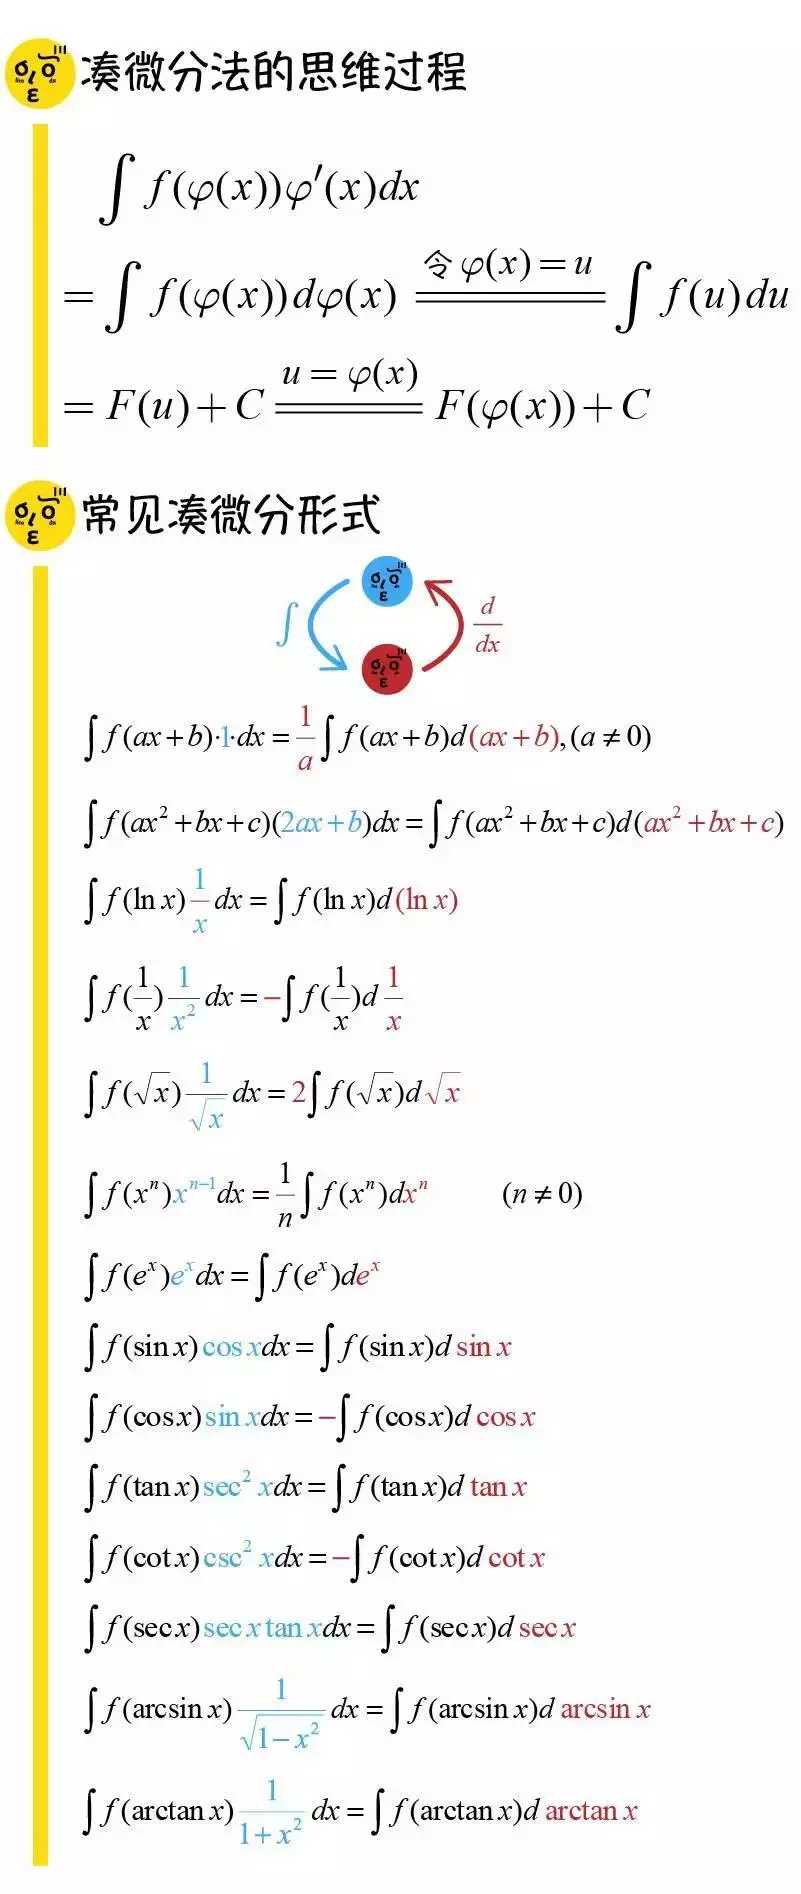 凑微分法的思维过程
∫ f(φ(x))φ′(x)dx
= ∫ f(φ(x))dφ(x) \xlongequal{令 φ(x) = u} ∫ f(u)du
= F(u) + C \xlongequal{u = φ(x)} F(φ(x)) + C
常见凑微分形式
∫ d/dx
∫ f(ax + b)·1·dx = 1/a ∫ f(ax + b)d(ax + b), (a ≠ 0)
∫ f(ax² + bx + c)(2ax + b)dx = ∫ f(ax² + bx + c)d(ax² + bx + c)
∫ f(ln x) 1/x dx = ∫ f(ln x)d(ln x)
∫ f(1/x) 1/x² dx = −∫ f(1/x)d 1/x
∫ f(√x) 1/√x dx = 2∫ f(√x)d√x
∫ f(xⁿ)xⁿ⁻¹dx = 1/n ∫ f(xⁿ)dxⁿ (n ≠ 0)
∫ f(eˣ)eˣdx = ∫ f(eˣ)deˣ
∫ f(sin x) cos xdx = ∫ f(sin x)d sin x
∫ f(cos x) sin xdx = −∫ f(cos x)d cos x
∫ f(tan x) sec² xdx = ∫ f(tan x)d tan x
∫ f(cot x) csc² xdx = −∫ f(cot x)d cot x
∫ f(sec x) sec x tan xdx = ∫ f(sec x)d sec x
∫ f(arcsin x) 1/√(1 − x²) dx = ∫ f(arcsin x)d arcsin x
∫ f(arctan x) 1/(1 + x²) dx = ∫ f(arctan x)d arctan x